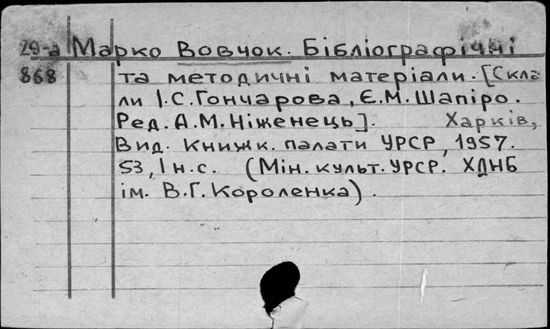 29-а Марко Вовчок. Бібліографічні
868 та методичні матеріали. [Скла
ли І.С. Гончарова, Є.М. Шапіро.
Ред. А.М. Ніженець]. Харків,
Вид. Книжк. палати УРСР, 1957.
53, 1 н.с. (Мін. культ. УРСР. ХДНБ
ім. В.Г. Короленка).